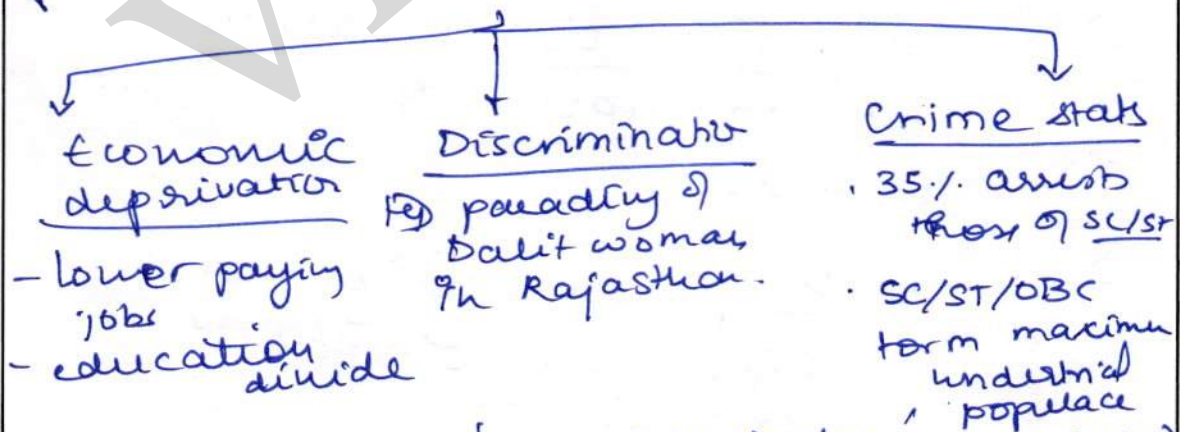 Economic
deprivation
- lower paying
jobs
- education
divide
Discrimination
Eg) parading of
Dalit woman
in Rajasthan.
Crime stats
. 35% arrests
those of SC/ST
. SC/ST/OBC
form maximum
undertrial
populace